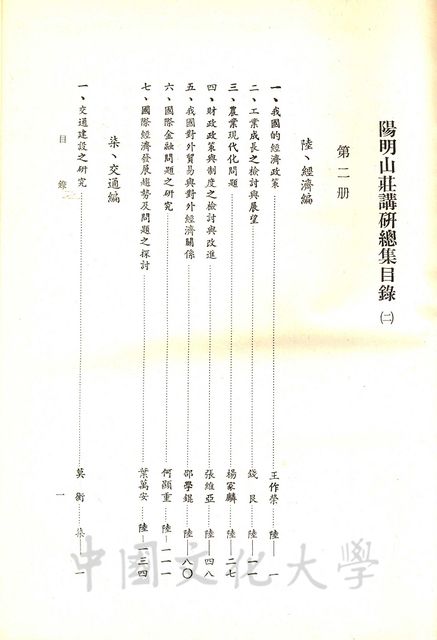 陽明山莊講研總集目錄 ㈡
第二冊
陸、經濟編
一、我國的經濟政策……王作榮 陸—一
二、工業成長之檢討與展望……錢 艮 陸—一一
三、農業現代化問題……楊家麟 陸—二七
四、財政政策與制度之檢討與改進……張維亞 陸—四八
五、我國對外貿易與對外經濟關係……邵學錕 陸—八〇
六、國際金融問題之研究……何顯重…陸—一一一
七、國際經濟發展趨勢及問題之探討……葉萬安…陸—一三四
柒、交通編
一、交通建設之研究……莫 衡…柒—一
目 錄
一
中國文化大學